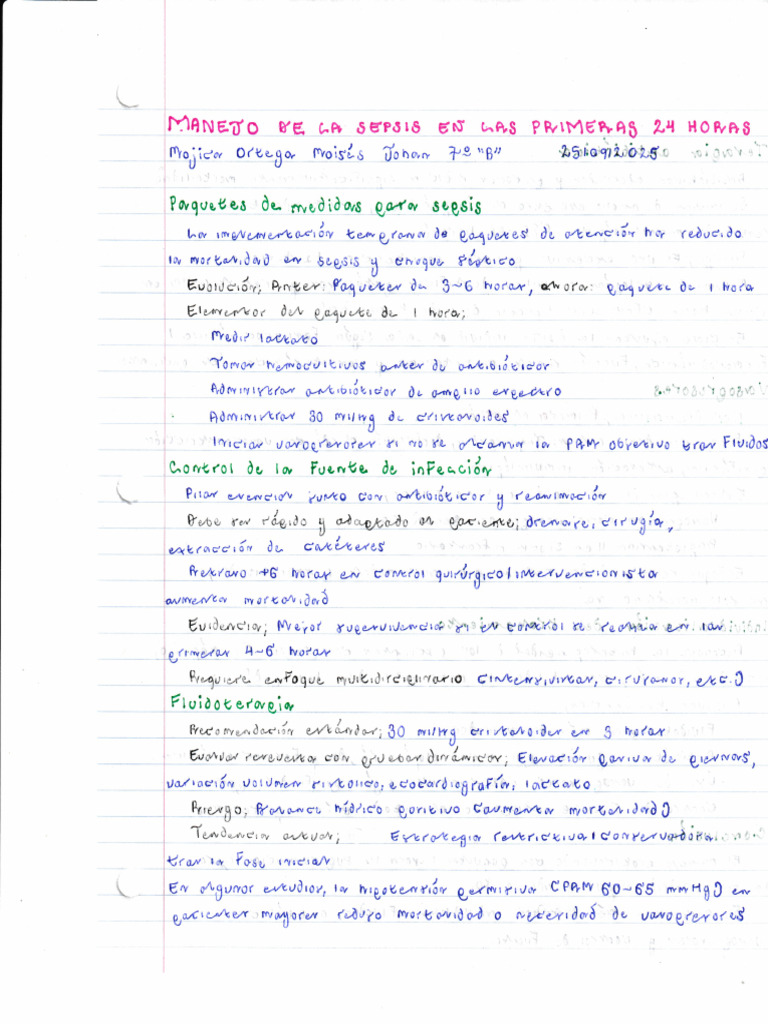 MANEJO DE LA SEPSIS EN LAS PRIMERAS 24 HORAS
Mojica Ortega Moisés Johan 7º "B" 25/09/2025
Paquetes de medidas para sepsis
La implementación temprana de paquetes de atención ha reducido
la mortalidad en sepsis y choque séptico
Evolución; Antes: Paquetes de 3~6 horas, ahora: paquete de 1 hora
Elementos del paquete de 1 hora;
Medir lactato
Tomar hemocultivos antes de antibióticos
Administrar antibióticos de amplio espectro
Administrar 30 ml/kg de cristaloides
Iniciar vasopresores si no se alcanza la PAM objetivo tras Fluidos
Control de la Fuente de infección
Pilar esencial junto con antibióticos y reanimación
Debe ser rápido y adaptado al paciente; drenaje, cirugía,
extracción de catéteres
Retraso +6 horas en control quirúrgico/intervencionista
aumenta mortalidad
Evidencia; Mejor supervivencia si el control se realiza en las
primeras 4~6 horas
Requiere enfoque multidisciplinario (intensivistas, cirujanos, etc.)
Fluidoterapia
Recomendación estándar; 30 ml/kg cristaloides en 3 horas
Evaluar respuesta con pruebas dinámicas; Elevación pasiva de piernas,
variación volumen sistolico, ecocardiografía, lactato
Riesgo; Balance hídrico positivo (aumenta mortalidad)
Tendencia actual; Estrategia restrictiva/conservadora
tras la fase inicial
En algunos estudios, la hipotensión permisiva (PAM 60~65 mmHg) en
pacientes mayores redujo mortalidad o necesidad de vasopresores